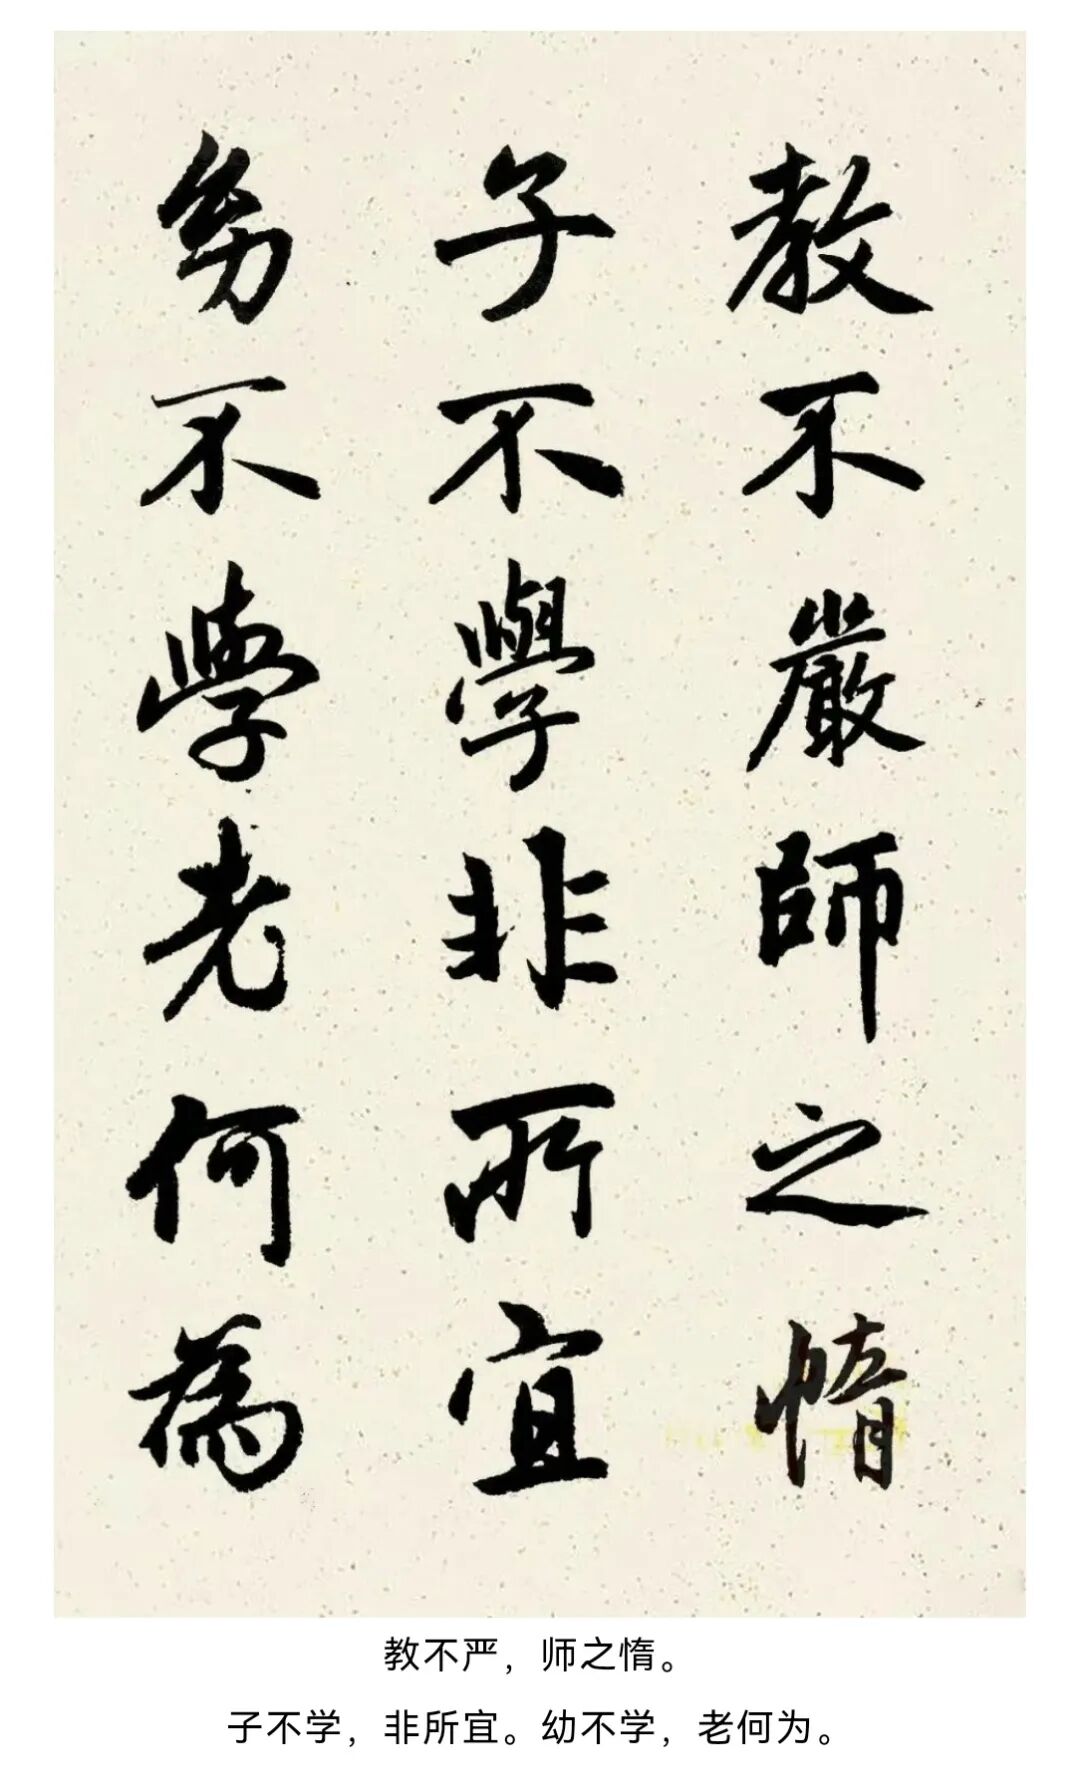 教不嚴師之惰
子不學非所宜
幼不學老何為
教不严，师之惰。
子不学，非所宜。幼不学，老何为。